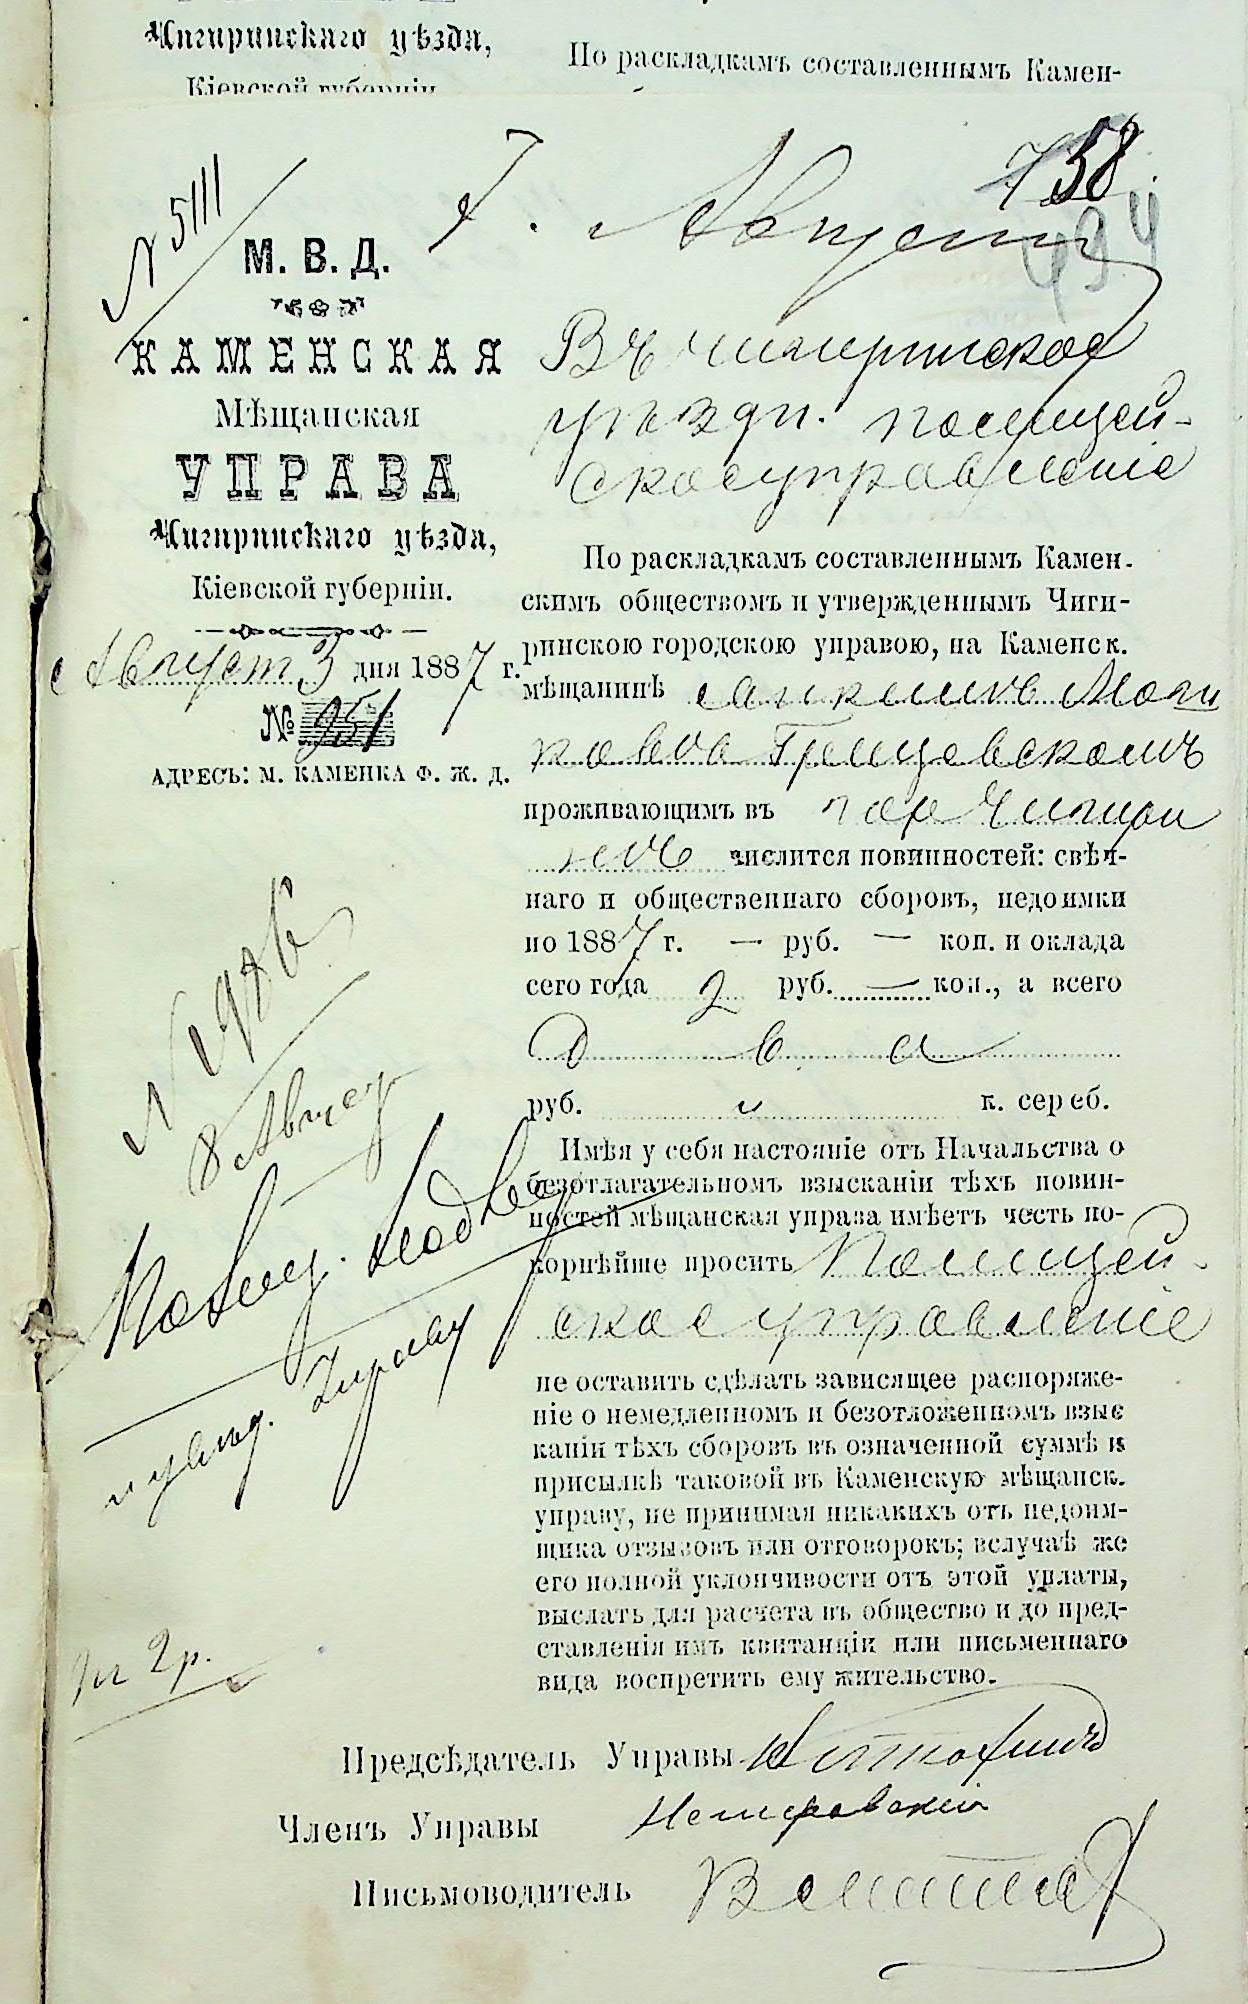 Чигиринскаго уѣзда,
Кіевской губерніи
По раскладкамъ составленнымъ Камен-
7 58
494
№ 5111
7. Августа
М. В. Д.
КАМЕНСКАЯ
Мѣщанская
УПРАВА
Чигиринскаго уѣзда,
Кіевской губерніи.
Август 3 дня 1887 г.
№ 951
АДРЕСЪ: М. КАМЕНКА Ф. Ж. Д.
Въ Чигиринское
уѣздн. полицей-
ское управленіе
По раскладкамъ составленнымъ Камен-
скимъ обществомъ и утвержденнымъ Чиги-
ринскою городскою управою, на Каменск.
мѣщанинѣ
проживающимъ въ гор Чигири
нѣ числится повинностей: свѣч-
наго и общественнаго сборовъ, недоимки
по 1887 г. — руб. — коп. и оклада
сего года 2 руб. — коп., а всего
два
руб. " к. сереб.
Имѣя у себя настояніе отъ Начальства о
безотлагательномъ взысканіи тѣхъ повин-
ностей мѣщанская управа имѣетъ честь по-
корнѣйше просить Полицей-
ское управленіе
не оставить сдѣлать зависящее распоряже-
ніе о немедленномъ и безотложенномъ взыс
каніи тѣхъ сборовъ въ означенной суммѣ и
присылкѣ таковой въ Каменскую мѣщанск.
управу, не принимая никакихъ отъ недоим-
щика отзывовъ или отговорокъ; вслучаѣ же
его полной уклончивости отъ этой уплаты,
выслать для расчета въ общество и до пред-
ставленія имъ квитанціи или письменнаго
вида воспретить ему жительство.
8 Август
управу
2 р.
Предсѣдатель Управы
Членъ Управы
Письмоводитель